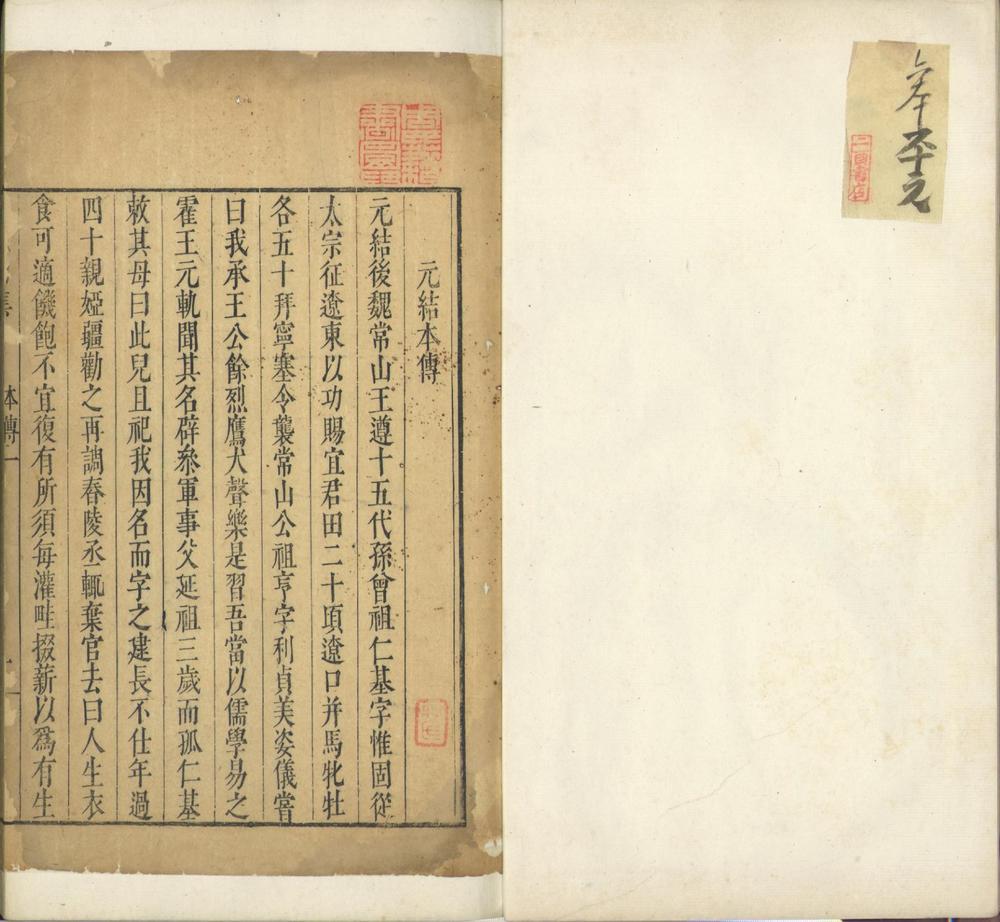 元結本傳
元結後魏常山王遵十五代孫曾祖仁基字惟固從
太宗征遼東以功賜宜君田二十頃遼口并馬牝牡
各五十拜寧塞令襲常山公祖亨字利貞美姿儀嘗
曰我承王公餘烈鷹犬聲樂是習吾當以儒學易之
霍王元軌聞其名辟叅軍事父延祖三歲而孤仁基
敕其母曰此兒且祀我因名而字之逮長不仕年過
四十親婭彊勸之再調舂陵丞輒棄官去曰人生衣
食可適饑飽不宜復有所須每灌畦掇薪以爲有生
本傳
一